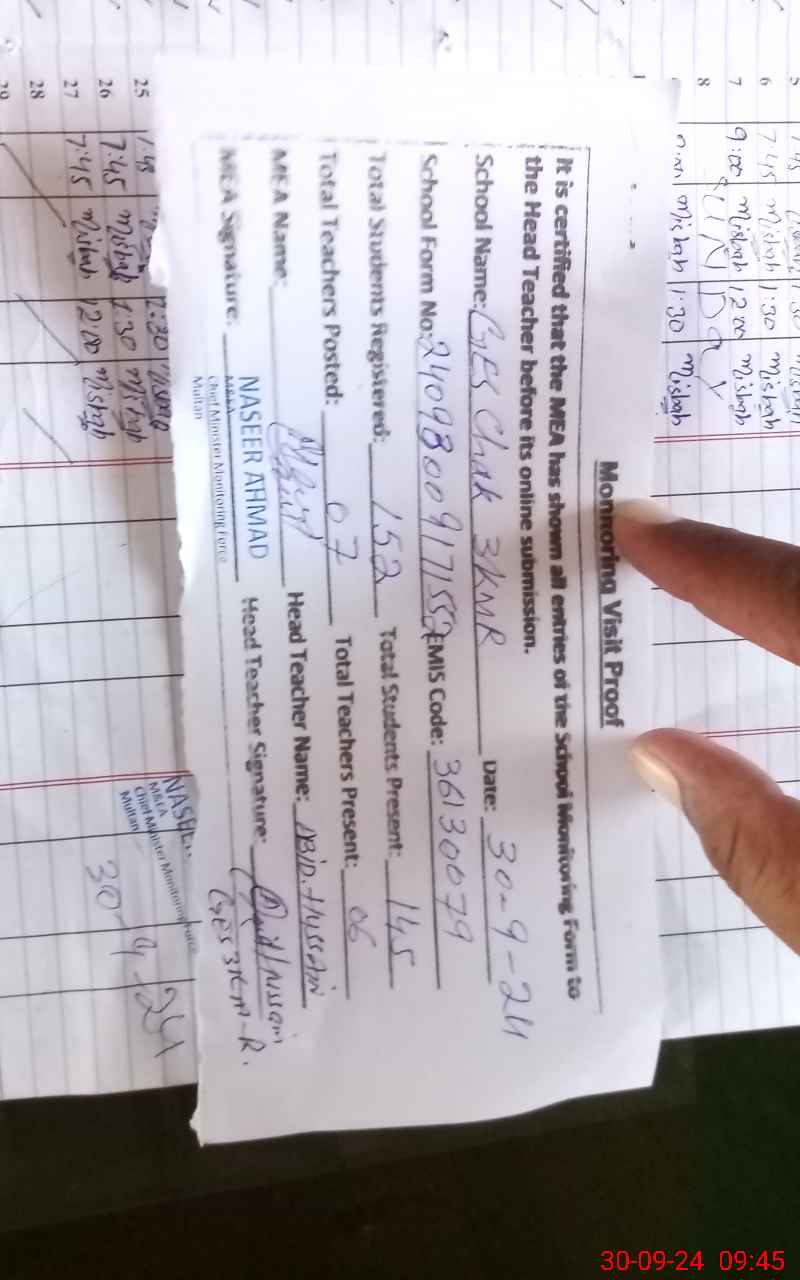 Monitoring Visit Proof
It is certified that the MEA has shown all entries of the School Monitoring Form to
the Head Teacher before its online submission.
School Name: GES Chak 3KMR Date: 30-9-24
School Form No: 2409800917155 EMIS Code: 36130079
Total Students Registered: 152 Total Students Present: 145
Total Teachers Posted: 07 Total Teachers Present: 06
MEA Name: Head Teacher Name: ABID. HUSSAIN
MEA Signature: Head Teacher Signature: Abid Hussain
GES 3KM-R.
NASEER AHMAD
M&EA
Chief Minister Monitoring Force
Multan
6 7:45 Misbah 1:30 Misbah
7 9:00 Misbah 12:00 Misbah
8 SUNDAY
Misbah 1:30 Misbah
25
26 7:45 Misbah 1:30 Misbah
27 7:45 Misbah 12:00 Misbah
28
M&EA
Chief Minister Monitoring Force
Multan
30-9-24
30-09-24 09:45